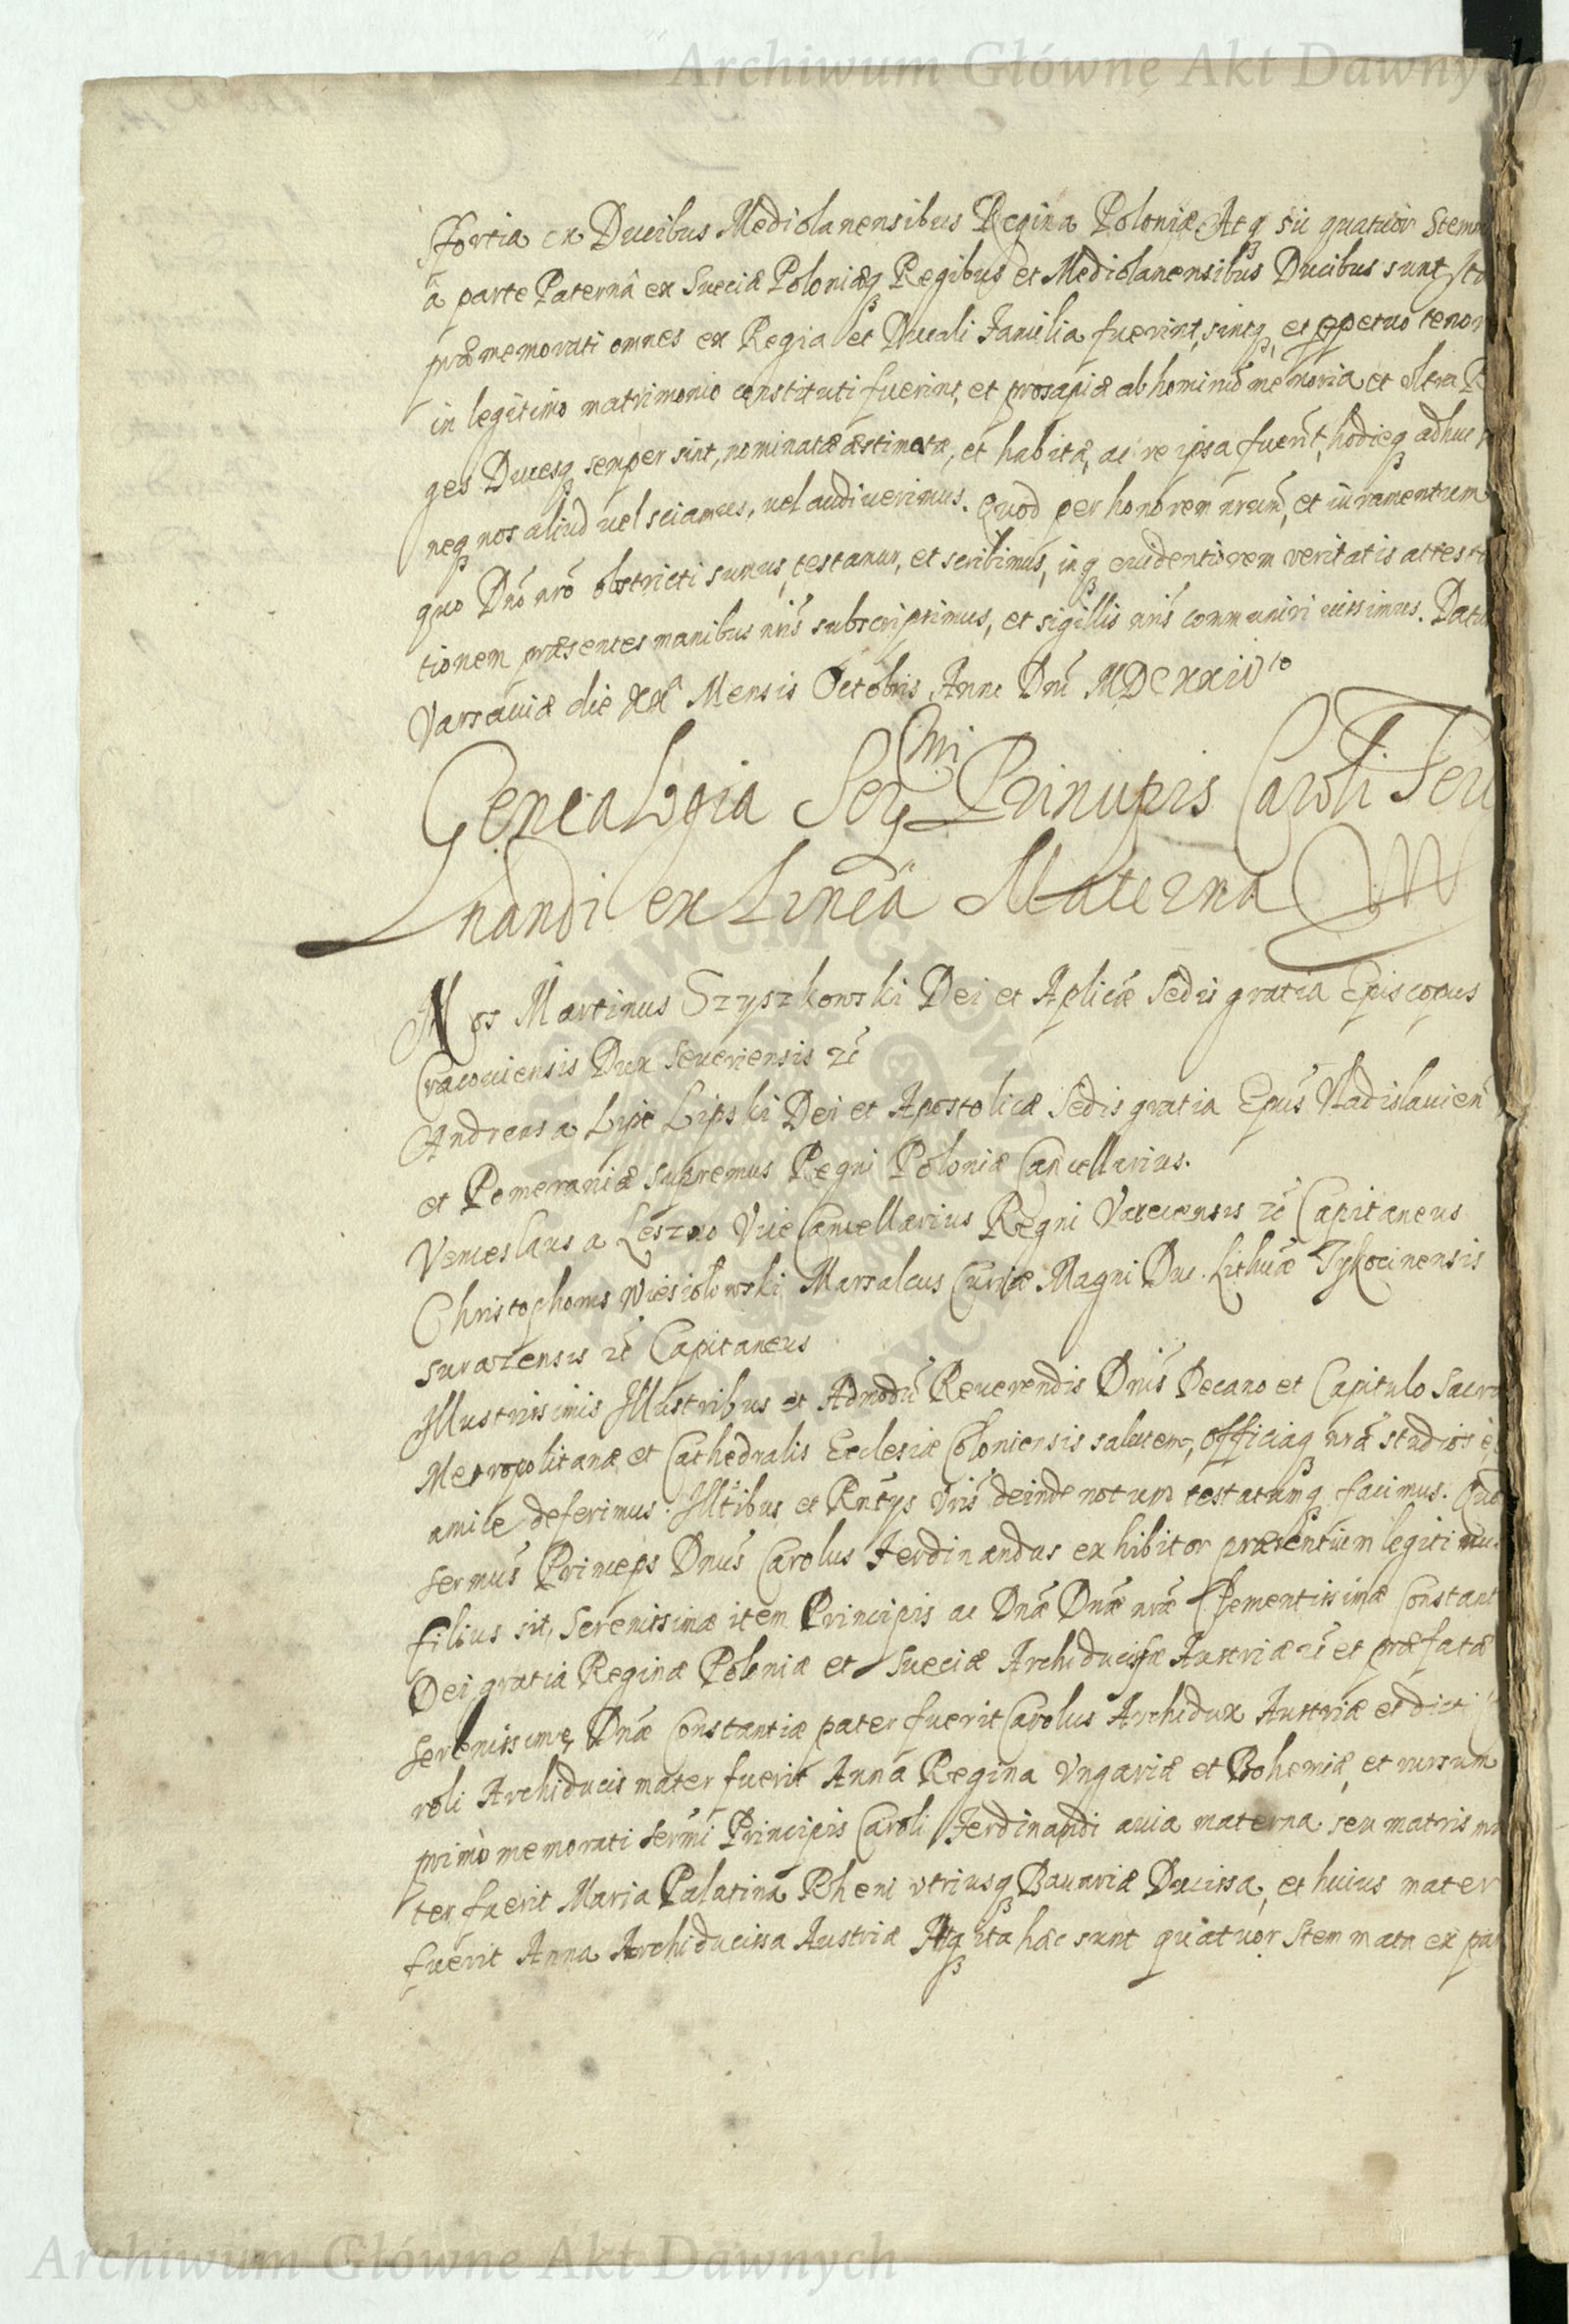 Archiwum Główne Akt Dawnych
Sfortia ex Ducibus Mediolanensibus Regina Poloniæ. Atq sic quatuor Stem
à parte Paternâ ex Sueciæ Poloniæq Regibus et Mediolanensibus Ducibus sunt
præmemorati omnes ex Regia et Ducali Familia fuerint, sintq, et ppetuo tenor
in legitimo matrimonio constituti fuerint, et prosapiæ ab hominũ memoria et ultra R
ges Ducesq semper sint, nominatæ æstimatæ, et habitæ, ac re ipsa fuerĩt, hodieq adhuc
neq nos aliud vel sciamus, vel audiuerimus. Quod per honorem nrum, et iuramentum
quo Dno nro obstricti sumus, testamur, et scribimus, inq euidentiorem veritatis attest
tionem præsentes manibus nris subscripsimus, et sigillis nris communiri iussimus. Dat
Varsauiæ die XXa Mensis Octobris Anno Dni MDCXXIVto
Genealogia Sermi Principis Caroli Fer
nandi ex Lineâ Materna
Nos Martinus Szyszkowski Dei et Aplicæ Sedis gratia Episcopus
Cracouiensis Dux Seueriensis zc
Andreas a Lipe Lipski Dei et Apostolicæ Sedis gratia Epus Vladislauien
et Pomeraniæ Supremus Regni Poloniæ Cancellarius.
Venceslaus a Leszno Vice Cancellarius Regni Varecensis zc Capitaneus
Christophorus Wiesiołowski Marsalcus Curiæ Magni Duc. Lithuæ Tykocinensis
Surazensis zc Capitaneus
Illustrissimis Illustribus et Admodũ Reuerendis Dnis Decano et Capitulo Sacr
Metropolitanæ et Cathedralis Ecclesiæ Coloniensis salutem, officiaq nra studiose,
amice deferimus. Illtibus et Rntys Vris deinde notum testatumq facimus. Quo
Sermus Princeps Dnus Carolus Ferdinandus exhibitor præsentium legitimus
filius sit, Serenissimæ item Principis ac Dnæ Dnæ nræ Clementissimæ Constant
Dei gratia Reginæ Poloniæ et Sueciæ Archiducissæ Austriæ zc et præfatæ
Serenissimę Dnæ Constantiæ pater fuerit Carolus Archidux Austriæ et dicti
roli Archiducis mater fuerit Anna Regina Vngariæ et Bohemiæ, et rursum
primo memorati Sermi Principis Caroli Ferdinandi auia materna seu matris m
ter fuerit Maria Palatina Rheni vtriusq Bauariæ Ducissa, et huius mater
fuerit Anna Archiducissa Austriæ Atq ita hæc sunt quatuor Stemmata ex pa
Archiwum Główne Akt Dawnych